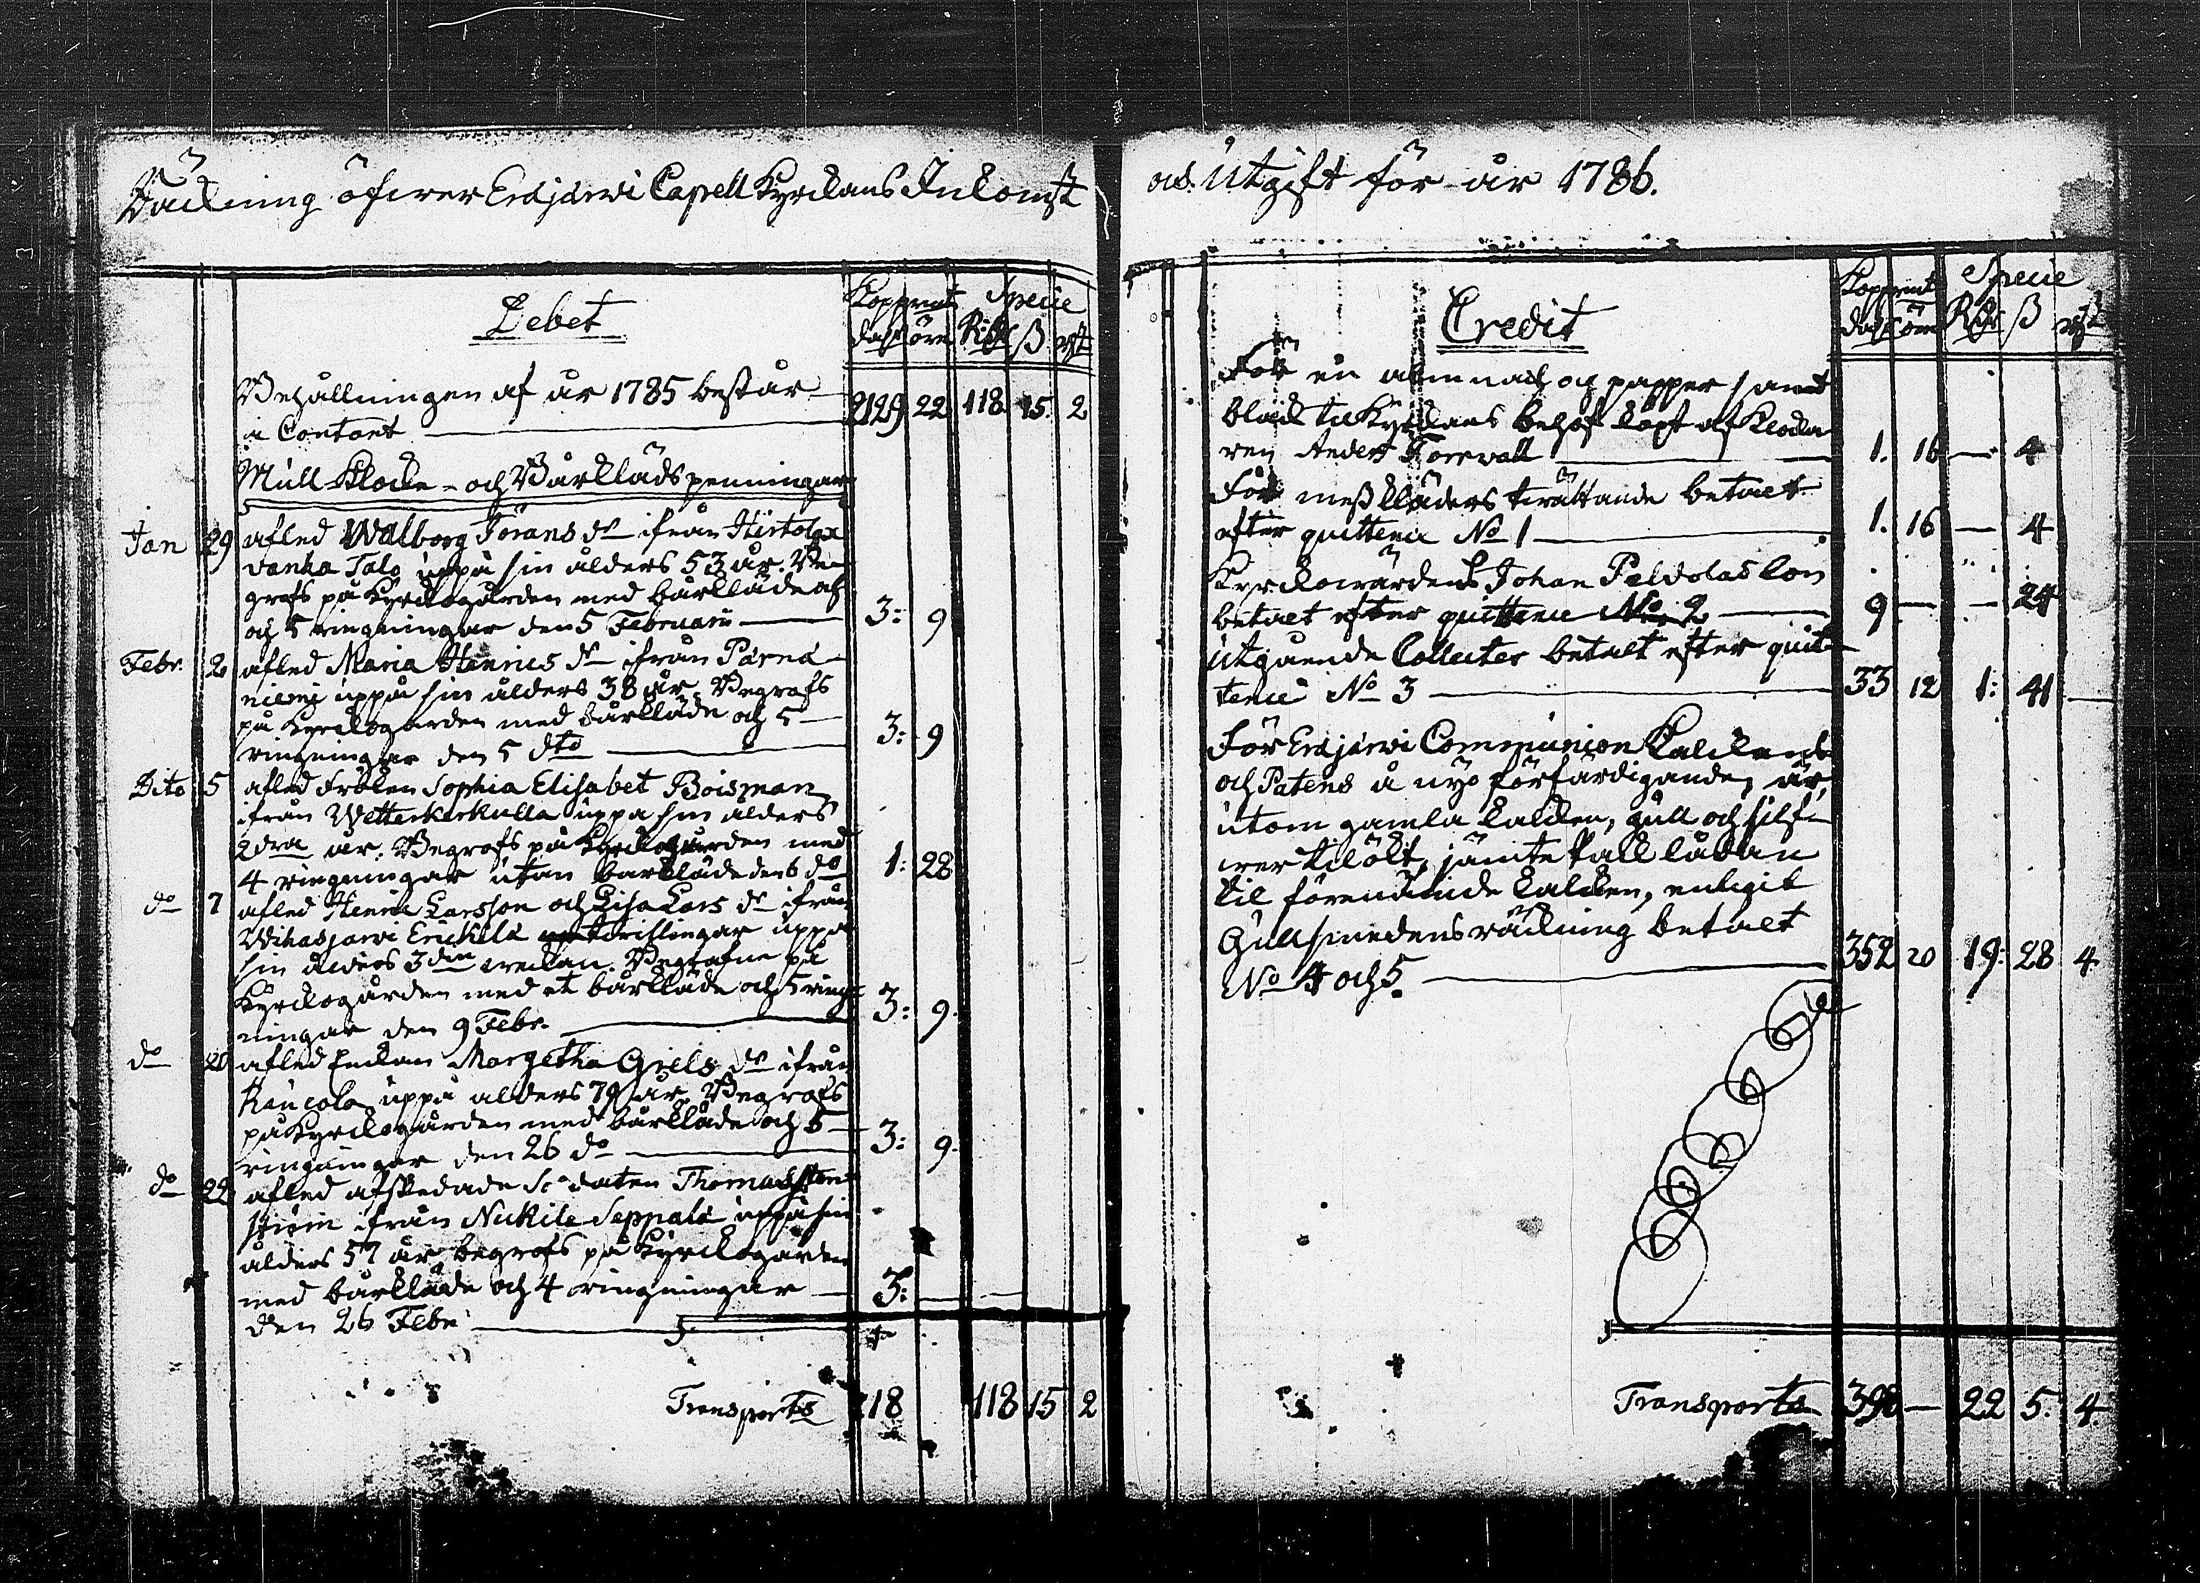 Räckning öfwer Erajärwi Capell Kyrckans Inkomst
Debet
Kopprmt Specie
dahl öre Rd ß rst
Behållningen af år 1785 består
i Contant 2129 22 118 15 2
Mull Klocke- och Bårklädspenningar
Jan 29 afled Walborg Jörans dr ifrån Hirtolax
vanha Talo uppå sin ålders 53 år. Be-
grofs på Kyrckogården med bårkläde
och 5 ringningar den 5 Februarii 3: 9
Febr. 2 afled Maria Henrics dr ifrån Pärnä
niemi uppå sin ålders 38 år. Begrofs
på Kyrckogården med bårkläde och 5
ringningar den 5 dto 3: 9
Dito 5 afled Frölen Sophia Elisabet Boisman
ifrån Wetterkulla uppå sin ålders
2dra år. Begrofs på Kyrckogården med
4 ringningar utan bårkläde den 5 do 1: 28
do 7 afled Henric Larsson och Lisa Lars dr ifrån
Wihasjärwi Erickilä twillingar uppå
sin ålders 3die weckan. Begrofne på
Kyrckogården med et bårkläde och 5 ring-
ningar den 9 Febr. 3: 9.
do 20 afled Enckan Margetha Griels dr ifrån
Raucola uppå ålders 79 år. Begrofs
på Kyrckogården med bårkläde och 5
ringningar den 26 do 3: 9.
do 22 afled afskedade Soldaten Thomas Sten-
ström ifrån Nickile Seppälä uppå sin
ålders 57 år begrofs på Kyrckogården
med bårkläde och 4 ringningar 3: —
den 26 Febr
Transports 18 118 15 2
och Utgift för år 1786.
Credit
Kopprmt Specie
dahl öre Rd ß rst
För en almnach och papper samt
bläck til Kyrckans behof köpt af Klocka-
ren Anders Forrwall 1. 16 — 4
För messkläders twättande betalt
efter quittence No 1 1. 16 — 4
Kyrckowärdens Johan Peldolas lön
betalt efter quittence No. 2 9 — — 24
Utgående Collecter betalt efter quit-
tence No 3 33 12 1: 41 —
För Erajärwi Communion Kalckens
och Patens å nyo förfärdigande, är,
utom gamla kalcken, gull och silf-
wer tilökt, jämte fall lådan
til förenämde kalcken, enligit
Gullsmedens räckning betalt
No 4 och 5. 352 20 19: 28 4.
Transports 398 — 22 5. 4.